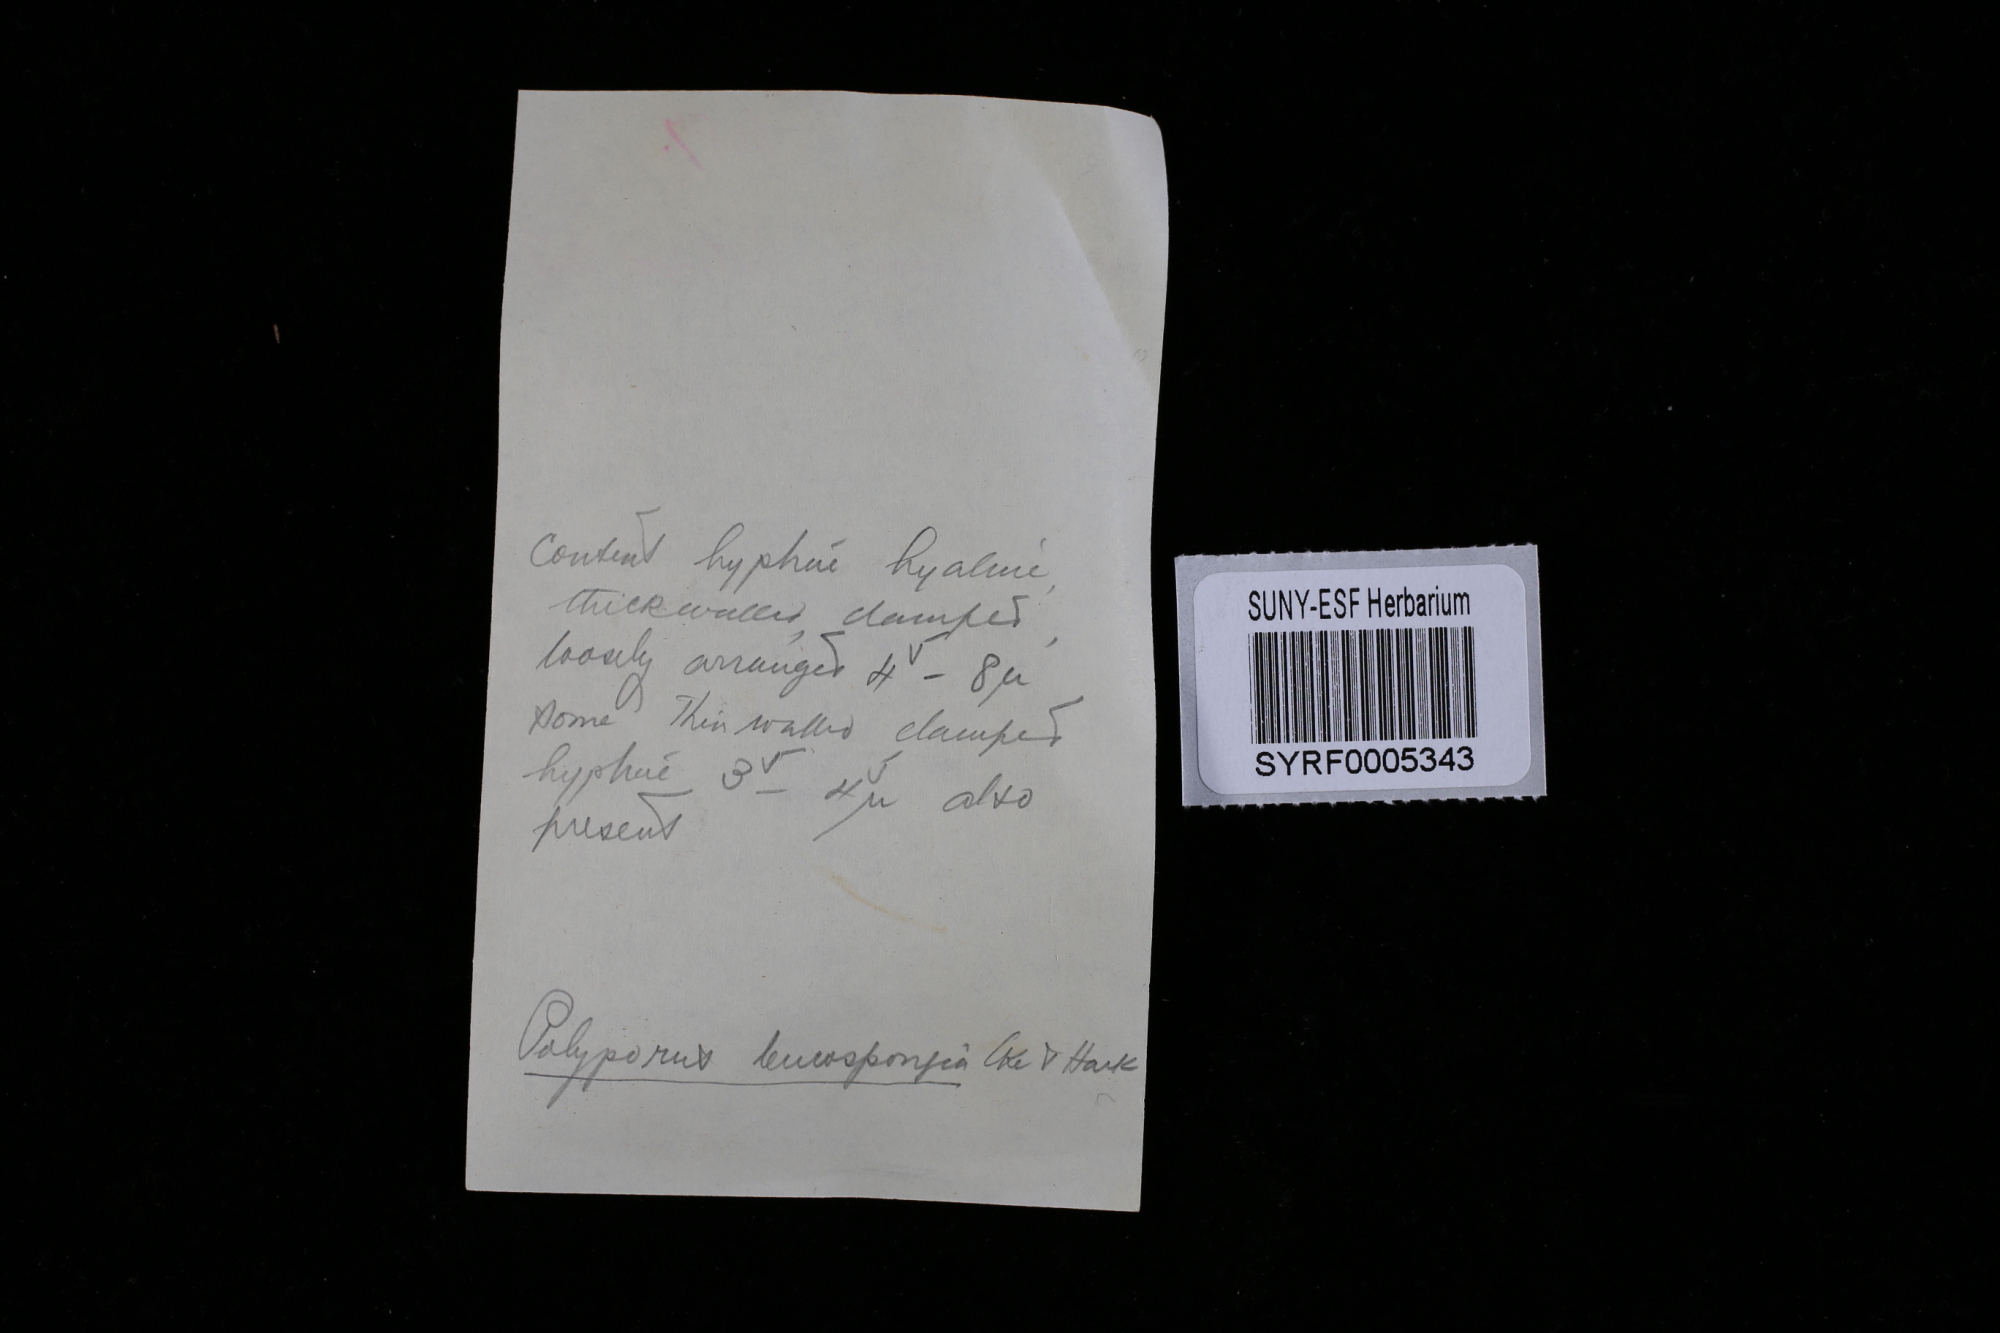 Context hyphae hyaline,
thickwalled, clamped,
loosely arranged 4 - 8µ
some thin walled clamped
hyphae 3 - 4µ also
present
Polyporus leucospongia Cke & Hark
SUNY-ESF Herbarium
SYRF0005343